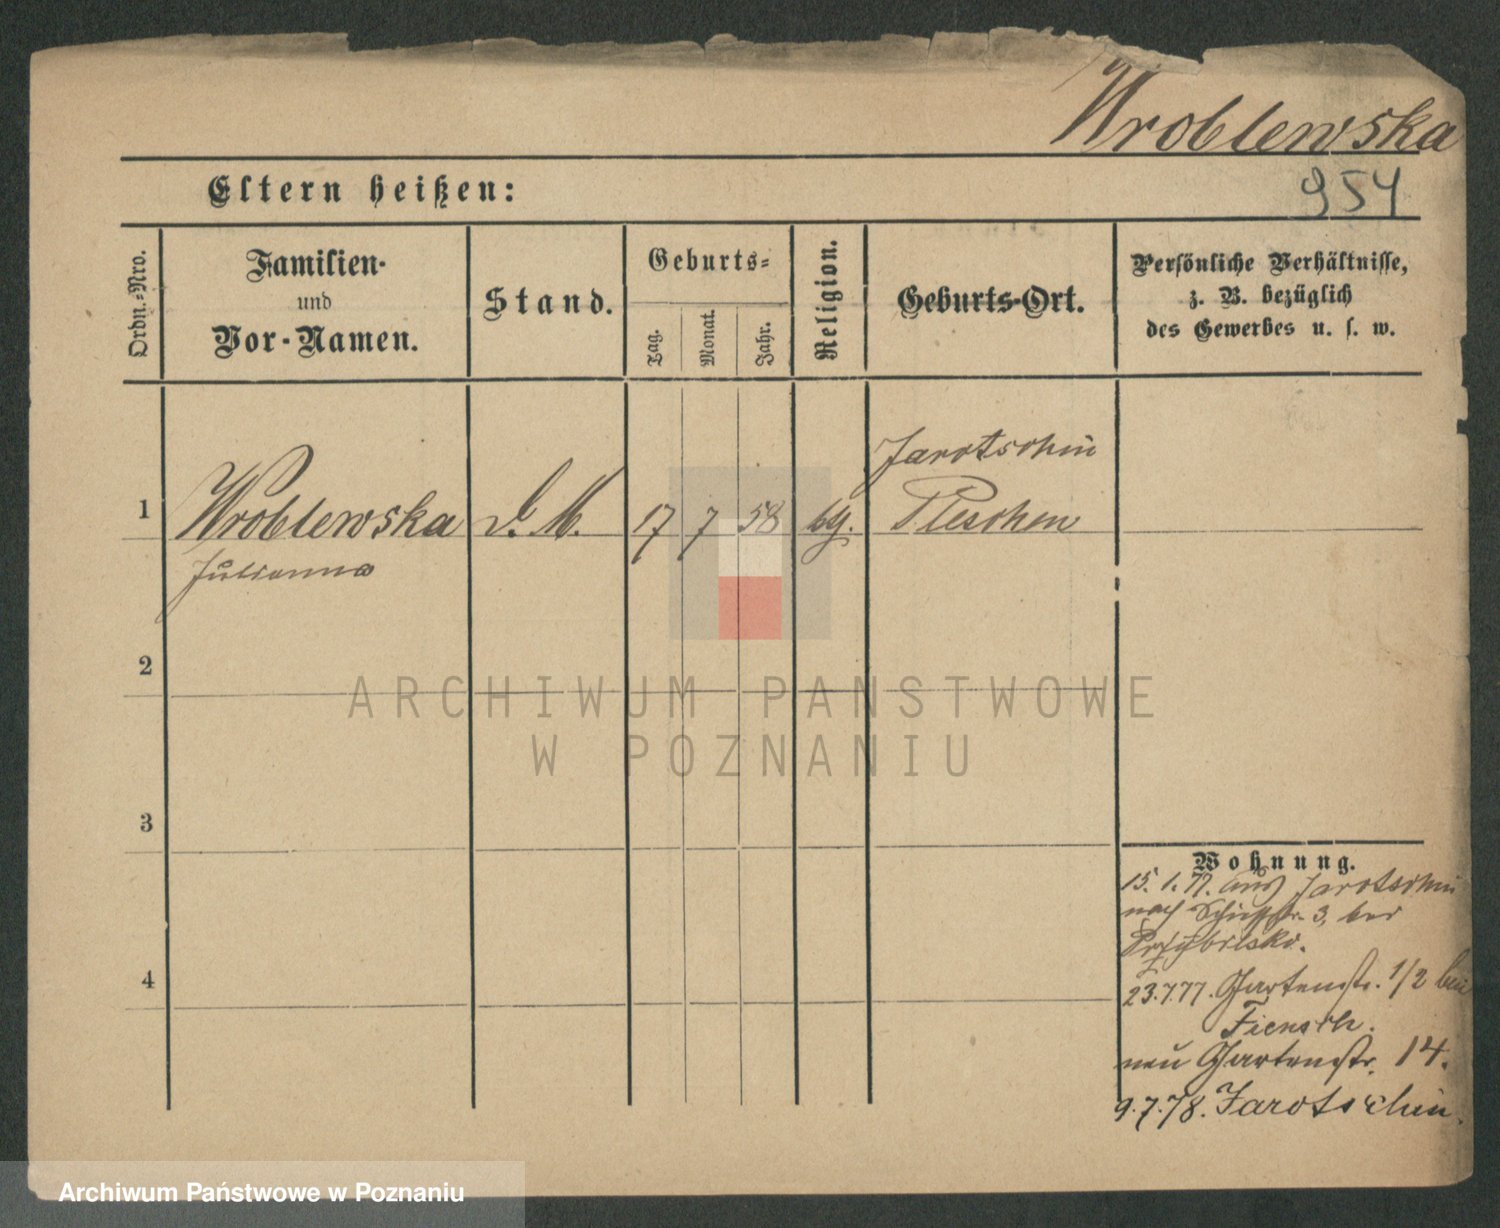 Wroblewska
Eltern heißen:
954
Ordn.-Nro.
Familien-
und
Vor-Namen.
Stand.
Geburts-
Tag.
Monat.
Jahr.
Religion.
Geburts-Ort.
Persönliche Verhältnisse,
z. B. bezüglich
des Gewerbes u. s. w.
Jarotschin
1
Wroblewska
D. M.
17
7
58
Pleschen
Julianna
2
ARCHIWUM PANSTWOWE
W POZNANIU
3
Wohnung.
15. 1. 77. aus Jarotschin
nach 3, bei
Przybilski.
4
23.7.77. Gartenstr. 1/2 bei
Fiensch.
neu Gartenstr. 14.
9.7.78. Jarotschin.
Archiwum Państwowe w Poznaniu